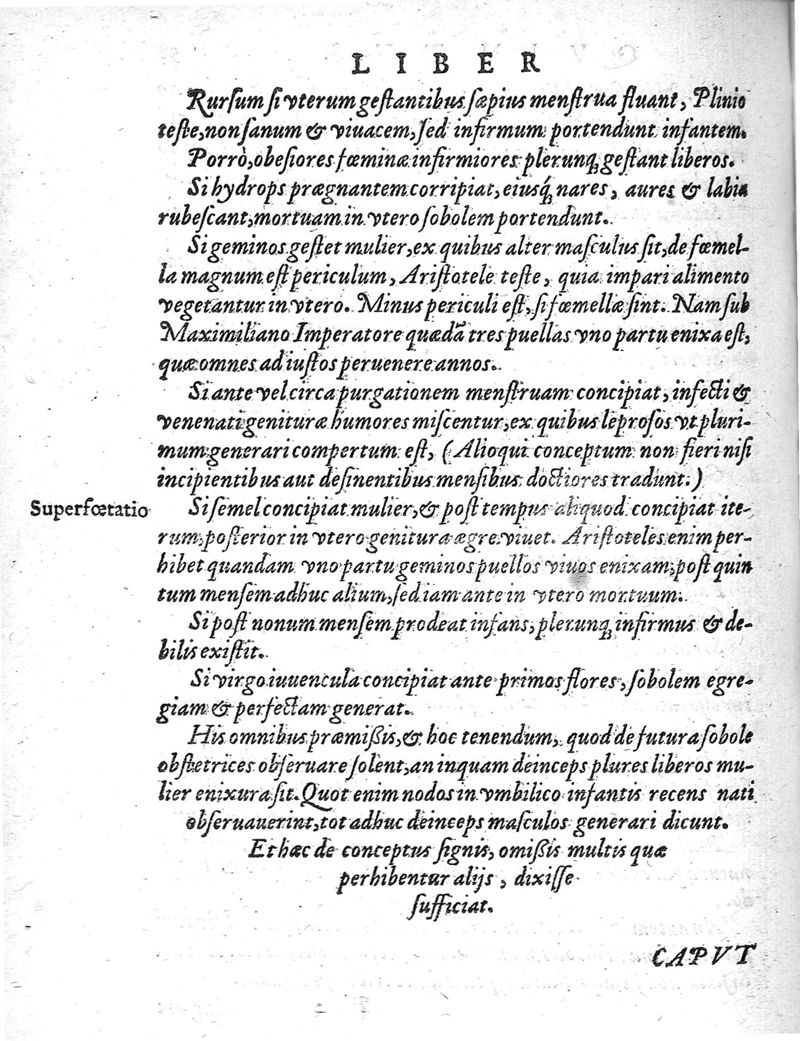 LIBER
Rursum si vterum gestantibus sæpius menstrua fluant, Plinio
teste, non sanum & viuacem, sed infirmum portendunt infantem.
Porrò, obesiores fœminæ infirmiores plerunq; gestant liberos.
Si hydrops prægnantem corripiat, eiusq́; nares, aures & labia
rubescant, mortuam in vtero sobolem portendunt.
Si geminos gestet mulier, ex quibus alter masculus sit, de fœmel-
la magnum est periculum, Aristotele teste, quia impari alimento
vegetantur in vtero. Minus periculi est, si fœmellæ sint. Nam sub
Maximiliano Imperatore quædã tres puellas vno partu enixa est,
quæ omnes ad iustos peruenere annos.
Si ante vel circa purgationem menstruam concipiat, infecti &
venenati genituræ humores miscentur, ex quibus leprosos vt pluri-
mum generari compertum est, (Alioqui conceptum non fieri nisi
incipientibus aut desinentibus mensibus doctiores tradunt.)
Superfœtatio
Si semel concipiat mulier, & post tempus aliquod concipiat ite-
rum, posterior in vtero genitura ægre viuet. Aristoteles enim per-
hibet quandam vno partu geminos puellos viuos enixam, post quin
tum mensem adhuc alium, sed iam ante in vtero mortuum.
Si post nonum mensem prodeat infans, plerunq; infirmus & de-
bilis existit.
Si virgo iuuencula concipiat ante primos flores, sobolem egre-
giam & perfectam generat.
His omnibus præmißis, & hoc tenendum, quod de futura sobole
obstetrices obseruare solent, an inquam deinceps plures liberos mu-
lier enixura sit. Quot enim nodos in vmbilico infantis recens nati
obseruauerint, tot adhuc deinceps masculos generari dicunt.
Et hæc de conceptus signis, omißis multis quæ
perhibentur alijs, dixisse
sufficiat.
CAPVT